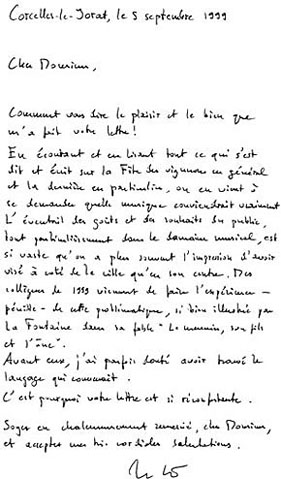 Corcelles-le-Jorat, le 5 septembre 1999
Cher Monsieur,
Comment vous dire le plaisir et le bien que
m'a fait votre lettre!
En écoutant et en lisant tout ce qui s'est
dit et écrit sur la Fête des vignerons en général
et la dernière en particulier, on en vient à
se demander quelle musique conviendrait vraiment.
L'éventail des goûts et des souhaits du public,
tout particulièrement dans le domaine musical, est
si vaste qu'on a plus souvent l'impression d'avoir
visé à côté de la cible qu'en son centre. Mes
collègues de 1999 viennent de faire l'expérience -
pénible - de cette problématique, si bien illustrée par
La Fontaine dans sa fable "Le meunier, son fils
et l'âne".
Avant eux, j'ai parfois douté avoir trouvé le
langage qui convenait.
C'est pourquoi votre lettre est si réconfortante.
Soyez en chaleureusement remercié, cher Monsieur,
et acceptez mes très cordiales salutations.